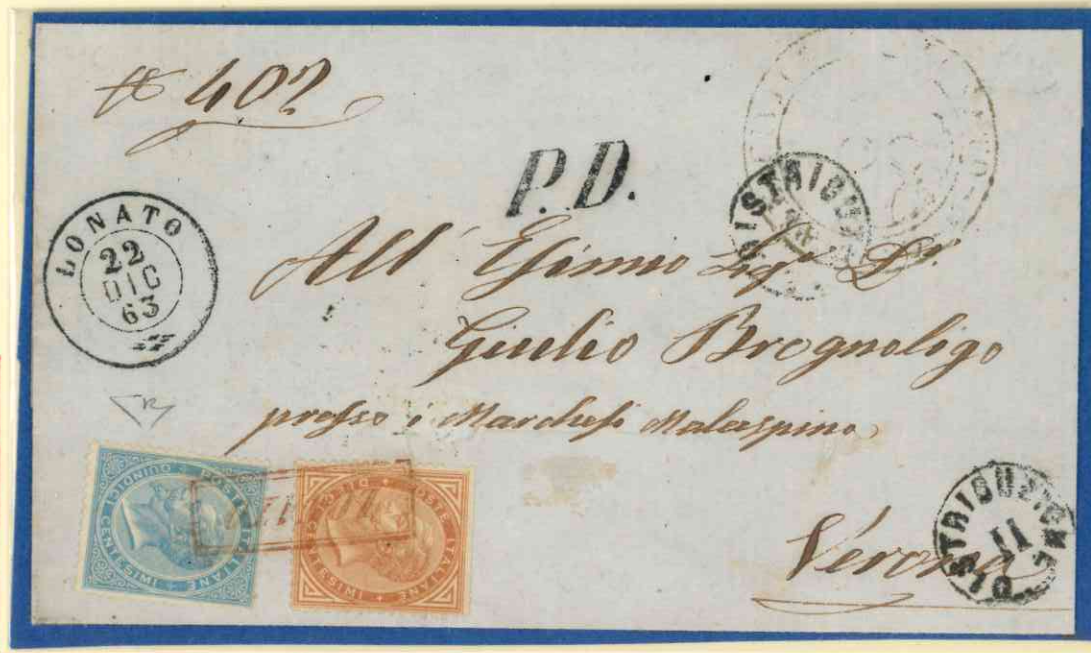 # 402
P.D.
LONATO
22
DIC
63
DISTRIBUZ
All' Esimio Sigr. Dr.
Giulio Brognoligo
presso i Marchesi Malaspina
Verona
DISTRIBUZIONE
II
POSTE ITALIANE
QUINDICI CENTESIMI
POSTE ITALIANE
CENTESIMI